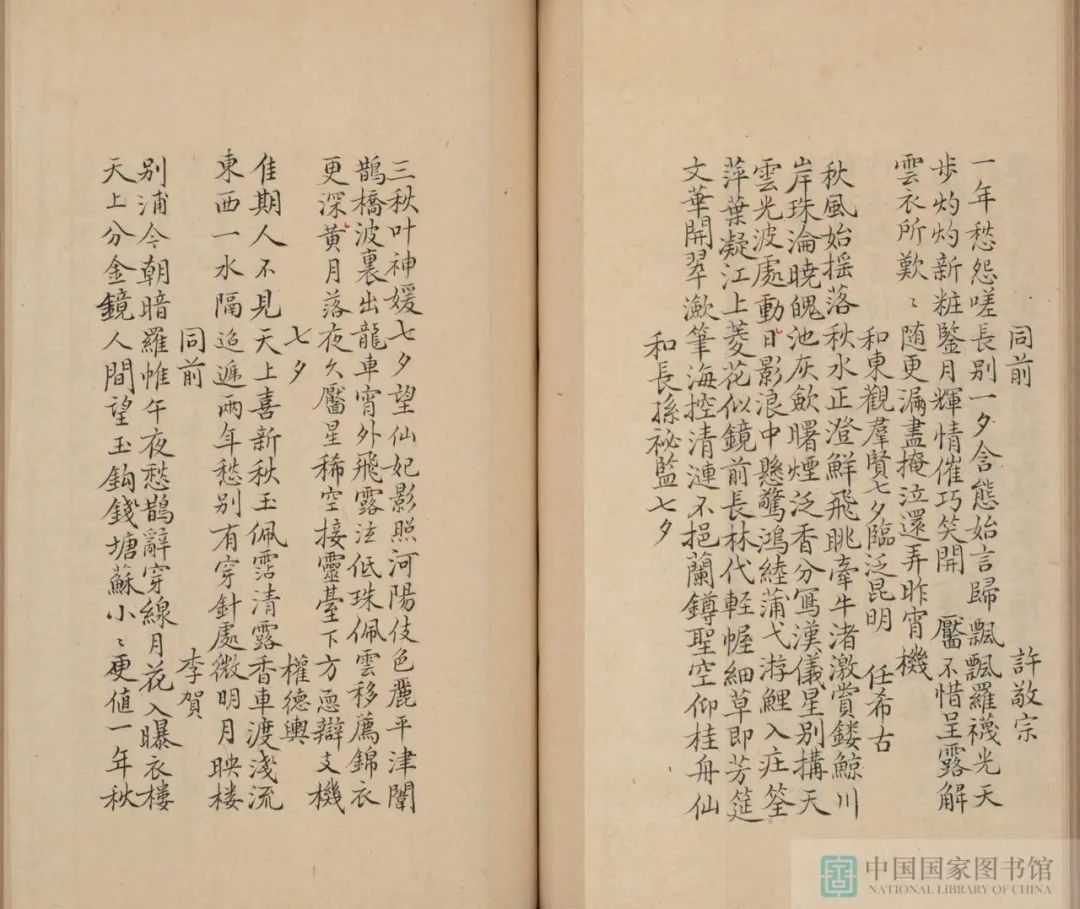 同前　許敬宗
一年愁怨嗟長別一夕含態始言歸飄飄羅襪光天
步灼灼新粧鑒月輝情催巧笑開　靨不惜呈露解
雲衣所歎〻随更漏盡掩泣還弄昨宵機
和東觀羣賢七夕臨泛昆明　任希古
秋風始揺落秋水正澄鮮飛眺牽牛渚激賞鏤鯨川
岸珠淪曉魄池灰斂曙煙泛香分寫漢儀星別構天
雲光波處動日影浪中懸驚鴻絓蒲弋游鯉入庄筌
萍葉凝江上菱花似鏡前長林代軽幄細草即芳筵
文華開翠潋筆海控清漣不挹蘭鐏聖空仰桂舟仙
和長孫祕監七夕
三秋叶神媛七夕望仙妃影照河陽伎色麗平津闈
鵲橋波裏出龍車宵外飛露泫低珠佩雲移薦錦衣
更深黄月落夜久靨星稀空接靈䑓下方恧辯支機
七夕　權德輿
佳期人不見天上喜新秋玉佩霑清露香車渡淺流
東西一水隔迢遞兩年愁別有穿針處微明月映楼
同前　李賀
別浦今朝暗羅帷午夜愁鵲辭穿線月花入曝衣樓
天上分金鏡人間望玉鈎錢塘蘇小〻更値一年秋
中国国家图书馆
NATIONAL LIBRARY OF CHINA